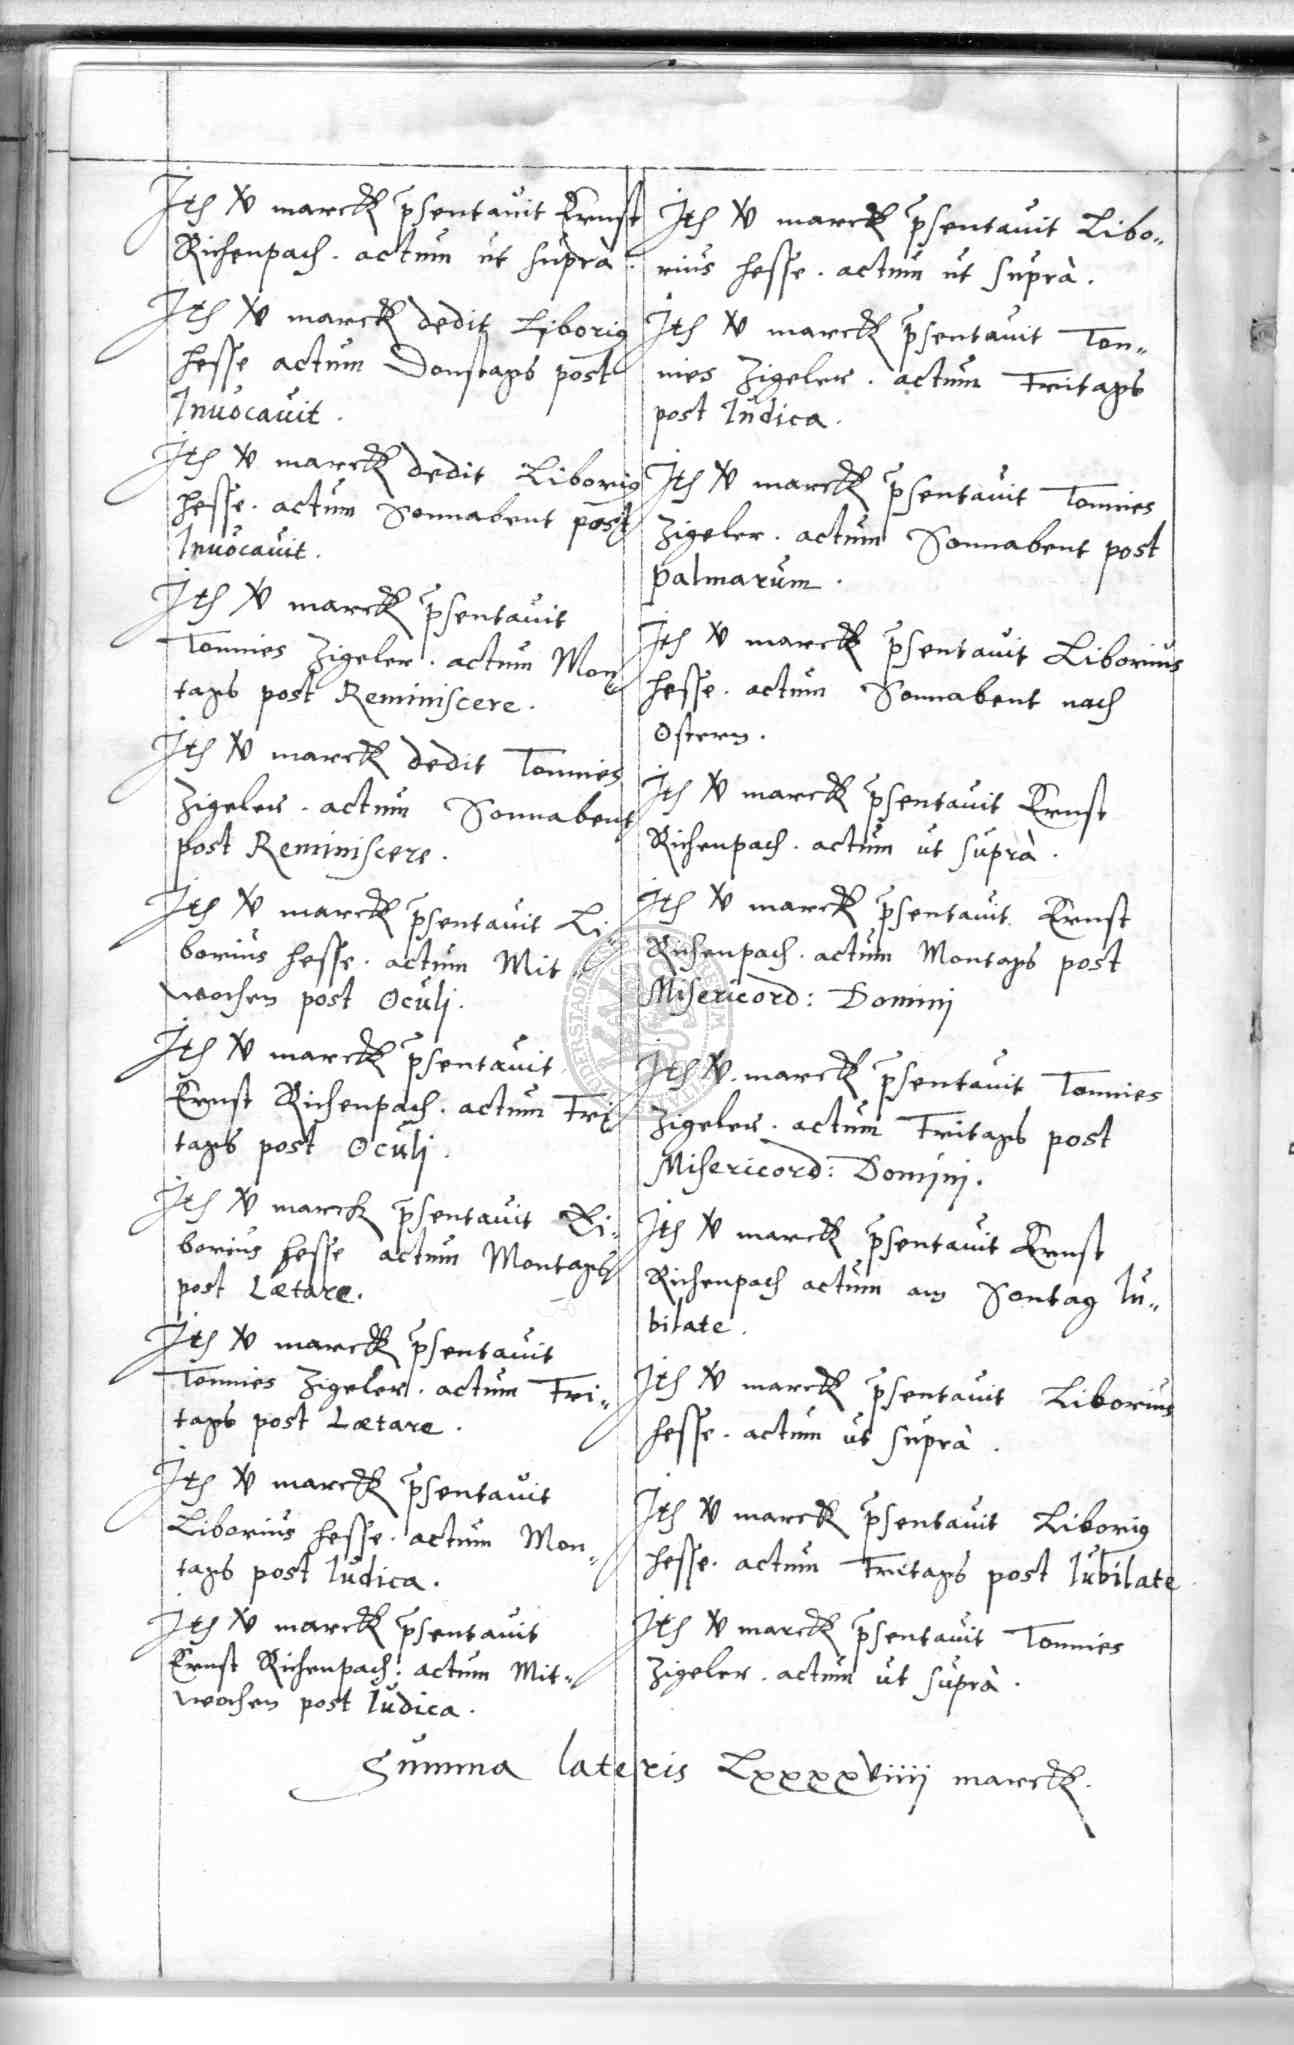 Itm v̸ marck p̃sentavit Ernst
Richenpach . actum ut supra .
Itm v̸ marck dedit Liboriꝰ
Hesse actum Donstags post
Invocavit .
Itm v̸ marck dedit Liboriꝰ
Hesse . actum Sonnabent post
Invocavit .
Itm v̸ marck p̃sentavit
Tonnies Zigeler . actum Mon„
tags post Reminiscere .
Itm v̸ marck dedit Tonnies
Zigeler . actum Sonnabent
post Reminiscere .
Itm v̸ marck p̃sentavit Li„
borius Hesse . actum Mit„
wochen post Oculj .
Itm v̸ marck p̃sentavit
Ernst Richenpach . actum Fri„
tags post Oculj .
Itm v̸ marck p̃sentavit Li„
borius Hesse actum Montags
post Lætare .
Itm v̸ marck p̃sentavit
Tonnies Zigeler . actum Fri„
tags post Lætare .
Itm v̸ marck p̃sentavit
Liborius Hesse . actum Mon„
tags post Iudica .
Itm v̸ marck p̃sentavit
Ernst Richenpach . actum Mit„
wochen post Iudica .
Itm v̸ marck p̃sentavit Libo„
rius Hesse . actum ut suprà .
Itm v̸ marck p̃sentavit Ton„
nies Zigeler . actum Fritags
post Iudica .
Itm v̸ marck p̃sentavit Tonnies
Zigeler . actum Sonnabent post
palmarum .
Itm v̸ marck p̃sentavit Liborius
Hesse . actum Sonnabent nach
Ostern .
Itm v̸ marck p̃sentavit Ernst
Richenpach . actum ut suprà .
Itm v̸ marck p̃sentavit Ernst
Richenpach . actum Montags post
Misericord: Dominj
Itm v̸ marck p̃sentavit Tonnies
Zigeler . actum Fritags post
Misericord: Dominj .
Itm v̸ marck p̃sentavit Ernst
Richenpach actum am Sontag Iu„
bilate .
Itm v̸ marck p̃sentavit Liborius
Hesse . actum ut suprà .
Itm v̸ marck p̃sentavit Liboriꝰ
Hesse . actum Fritags post Iubilate
Itm v̸ marck p̃sentavit Tonnies
Zigeler . actum ut suprà .
Summa lateris Lxxxxviiij marck .